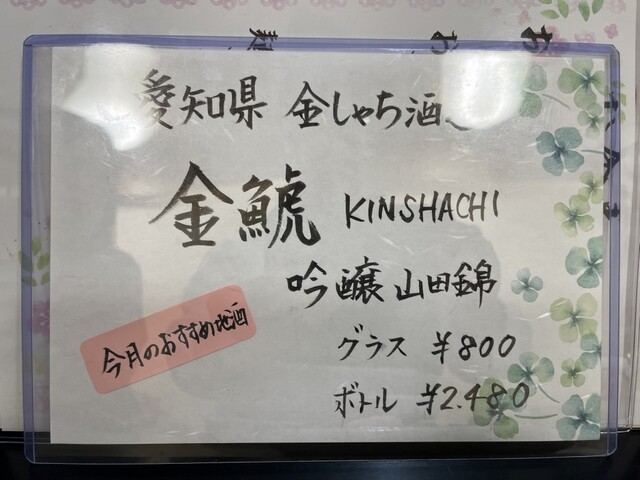 愛知県 金しゃち酒造
金鯱 KINSHACHI
吟醸 山田錦
今月のおすすめ地酒
グラス ¥800
ボトル ¥2.480